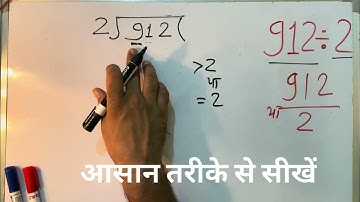 2)912(
>2
या
=2
912÷2
912
या
2
आसान तरीके से सीखें